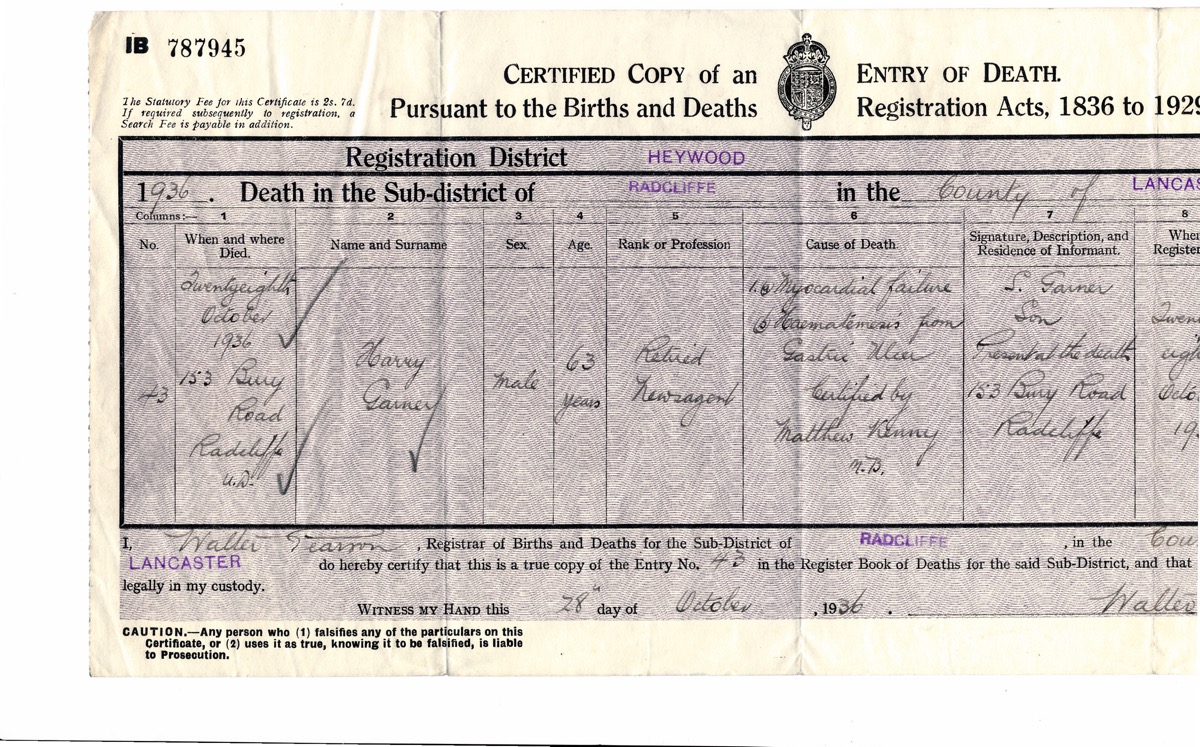 IB 787945
CERTIFIED COPY of an ENTRY OF DEATH.
The Statutory Fee for this Certificate is 2s. 7d.
If required subsequently to registration, a
Search Fee is payable in addition.
Pursuant to the Births and Deaths Registration Acts, 1836 to 1929
Registration District HEYWOOD
1936. Death in the Sub-district of RADCLIFFE in the County of LANCAS
Columns:— 1 2 3 4 5 6 7 8
No.
When and where
Died.
Name and Surname
Sex.
Age.
Rank or Profession
Cause of Death
Signature, Description, and
Residence of Informant.
When
Register
43
Twentyeighth
October
1936
153 Bury
Road
Radcliffe
U.D.
Harry
Garner
Male
63
years
Retired
Newsagent
1. (a) Myocardial failure
(b) Haematemesis from
Gastric Ulcer
Certified by
Matthew Kenny
M.B.
S. Garner
Son
Present at the death
153 Bury Road
Radcliffe
Twen
eigh
Octo
19
I, Walter , Registrar of Births and Deaths for the Sub-District of RADCLIFFE , in the Cou
LANCASTER do hereby certify that this is a true copy of the Entry No. 43 in the Register Book of Deaths for the said Sub-District, and that
legally in my custody.
WITNESS MY HAND this 28" day of October , 1936 . Walter
CAUTION.—Any person who (1) falsifies any of the particulars on this
Certificate, or (2) uses it as true, knowing it to be falsified, is liable
to Prosecution.